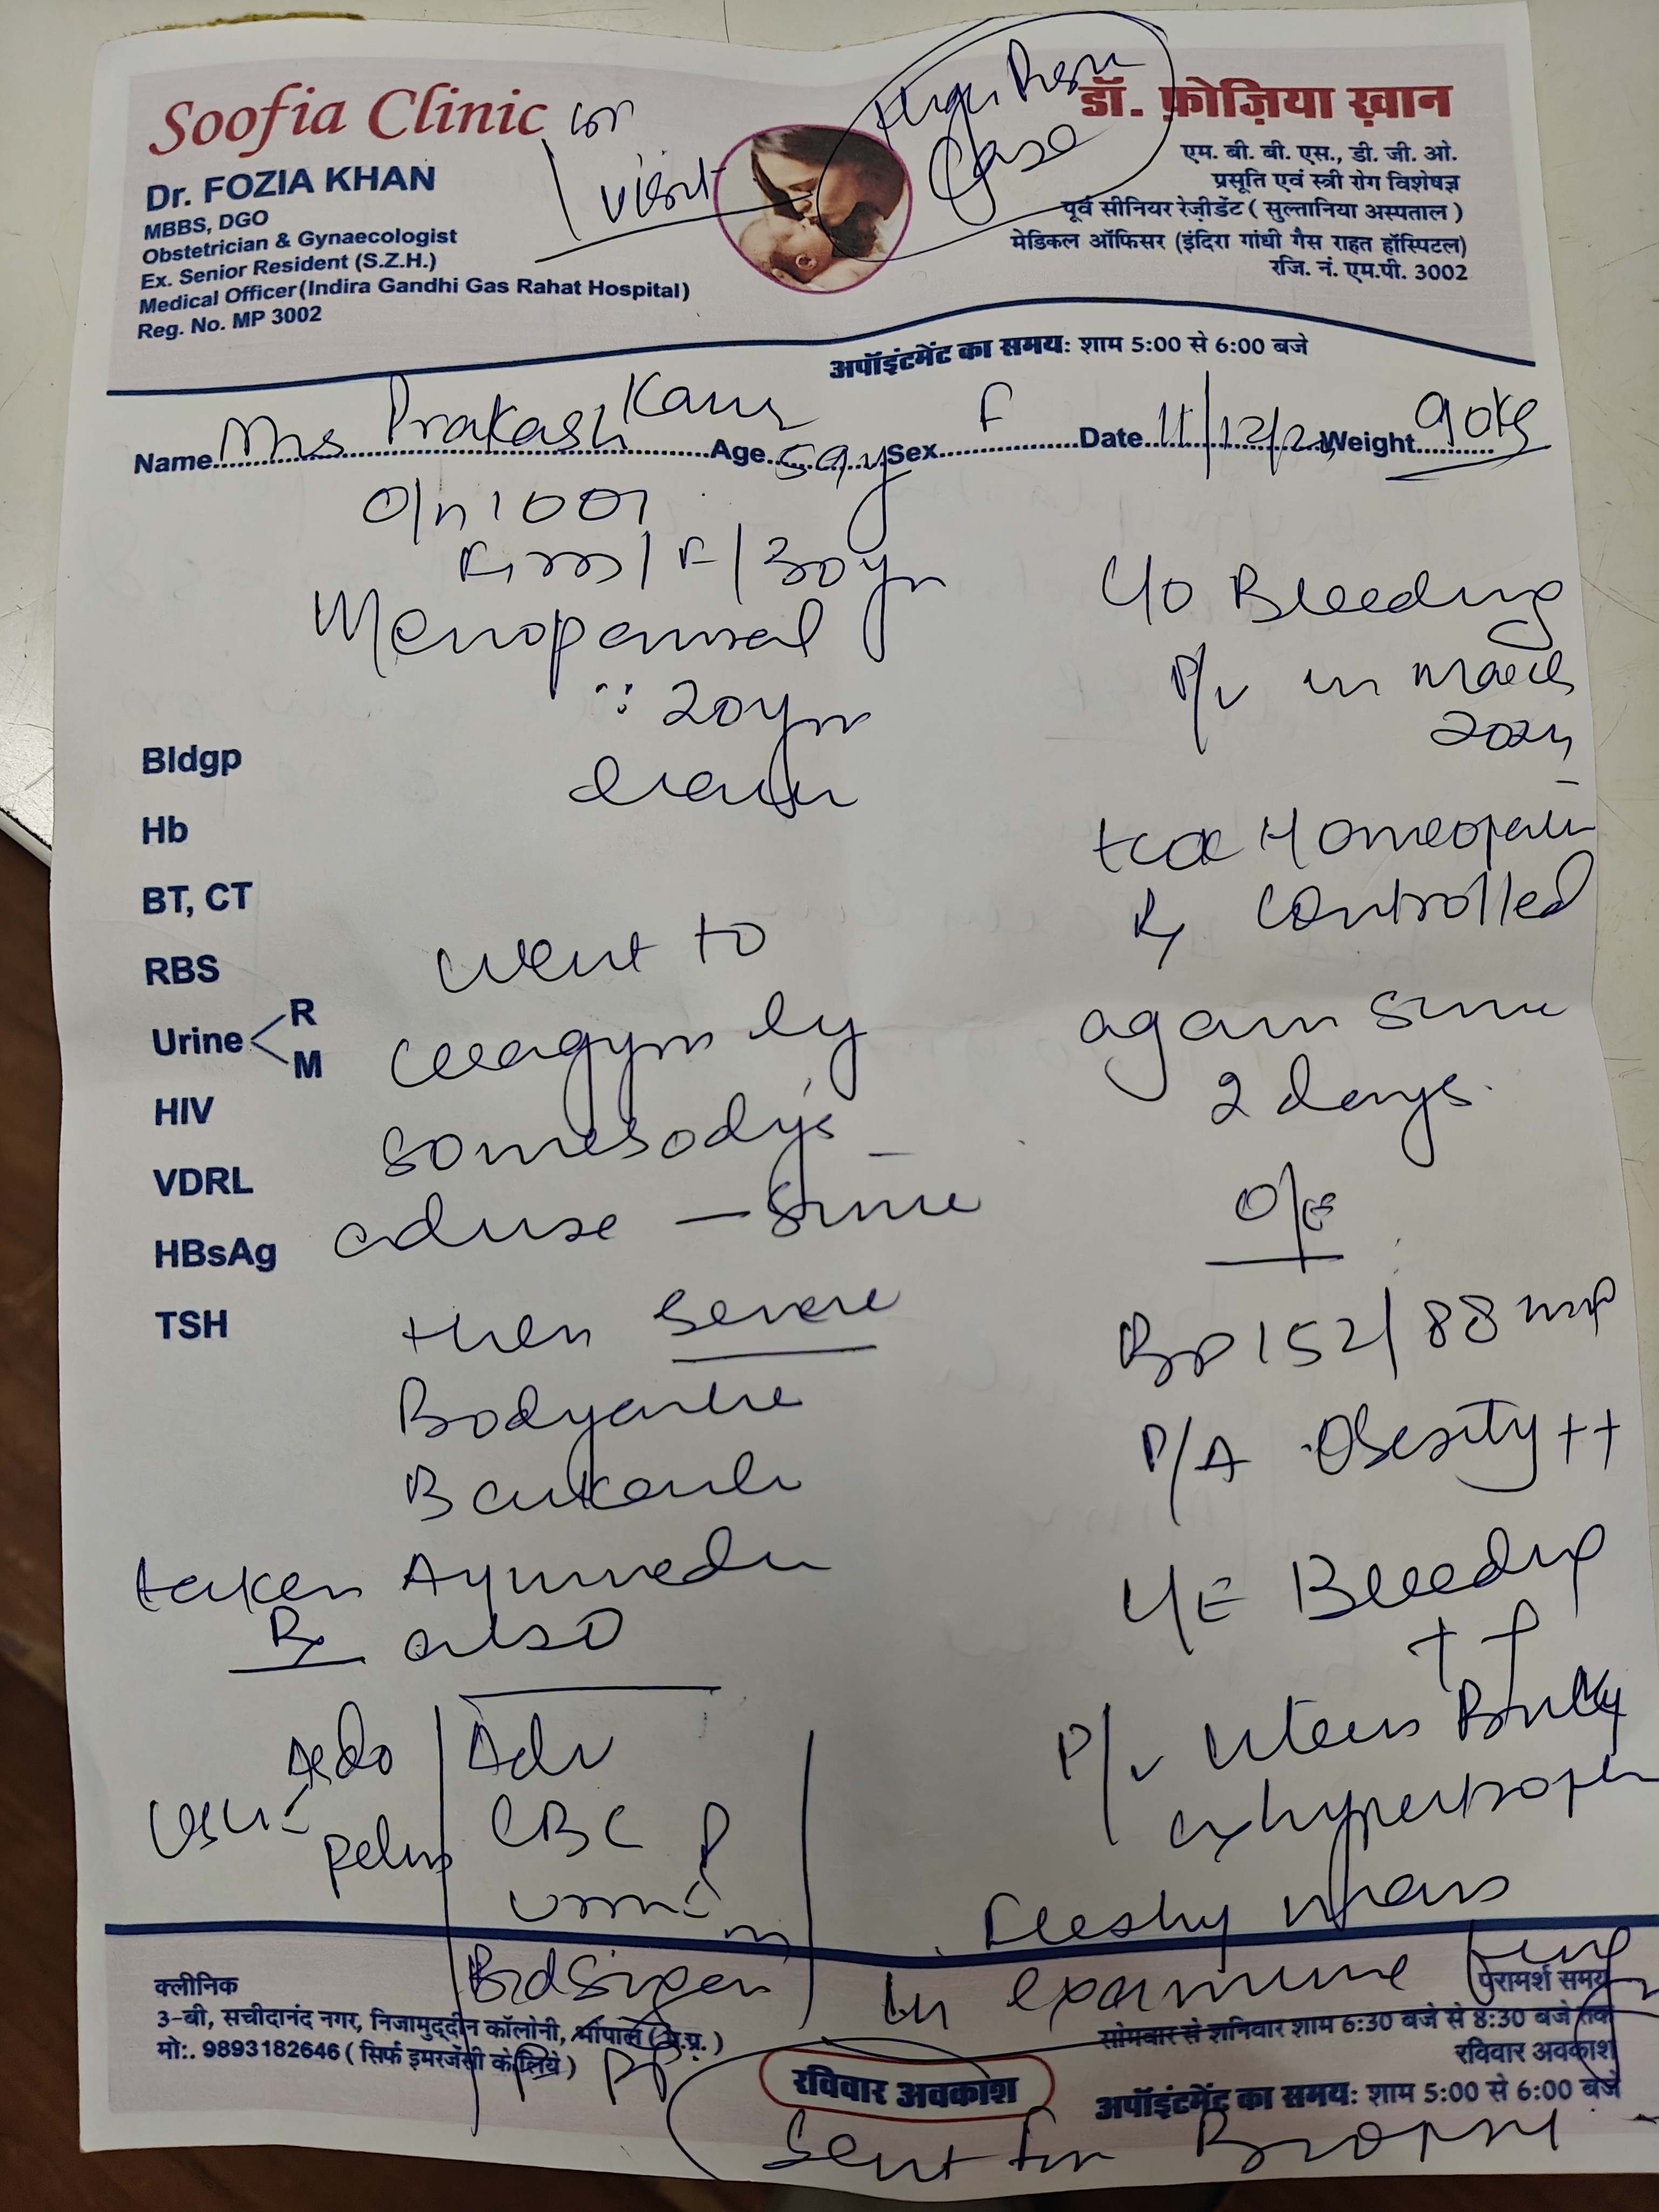 Soofia Clinic
Ist
visit
High Risk
Case
Dr. FOZIA KHAN
MBBS, DGO
Obstetrician & Gynaecologist
Ex. Senior Resident (S.Z.H.)
Medical Officer (Indira Gandhi Gas Rahat Hospital)
Reg. No. MP 3002
डॉ. फ़ोज़िया ख़ान
एम. बी. बी. एस., डी. जी. ओ.
प्रसूति एवं स्त्री रोग विशेषज्ञ
पूर्व सीनियर रेज़ीडेंट ( सुल्तानिया अस्पताल )
मेडिकल ऑफिसर (इंदिरा गांधी गैस राहत हॉस्पिटल)
रजि. नं. एम.पी. 3002
अपॉइंटमेंट का समय: शाम 5:00 से 6:00 बजे
Name Mrs Prakash Kaur Age 59y Sex F Date 11/12/2 Weight 90kg
F/30yr
Menopausal
∵ 20yr
Bldgp
Hb
BT, CT
RBS
Urine R
M
HIV
VDRL
HBsAg
TSH
went to
gym by
somebody's
advise — since
then severe
Bodyache
Backache
taken Ayurvedic
Rx also
Ado
USG
pelvis
Adv
CBC
Urine
Bd Sugar
F PP
C/O Bleeding
P/V in March
2024
took Homeopathic
Rx controlled
again since
2 days.
O/E
BP 152/88
P/A Obesity ++
L/E Bleeding
++
P/V Uterus Bulky
cx hypertrophied
fleshy mass
in examine finger
Sent for Biopsy
क्लीनिक
3-बी, सचीदानंद नगर, निजामुद्दीन कॉलोनी, भोपाल (म.प्र.)
मो:. 9893182646 ( सिर्फ इमरजेंसी के लिये )
रविवार अवकाश
परामर्श समय
सोमवार से शनिवार शाम 6:30 बजे से 8:30 बजे तक
रविवार अवकाश
अपॉइंटमेंट का समय: शाम 5:00 से 6:00 बजे